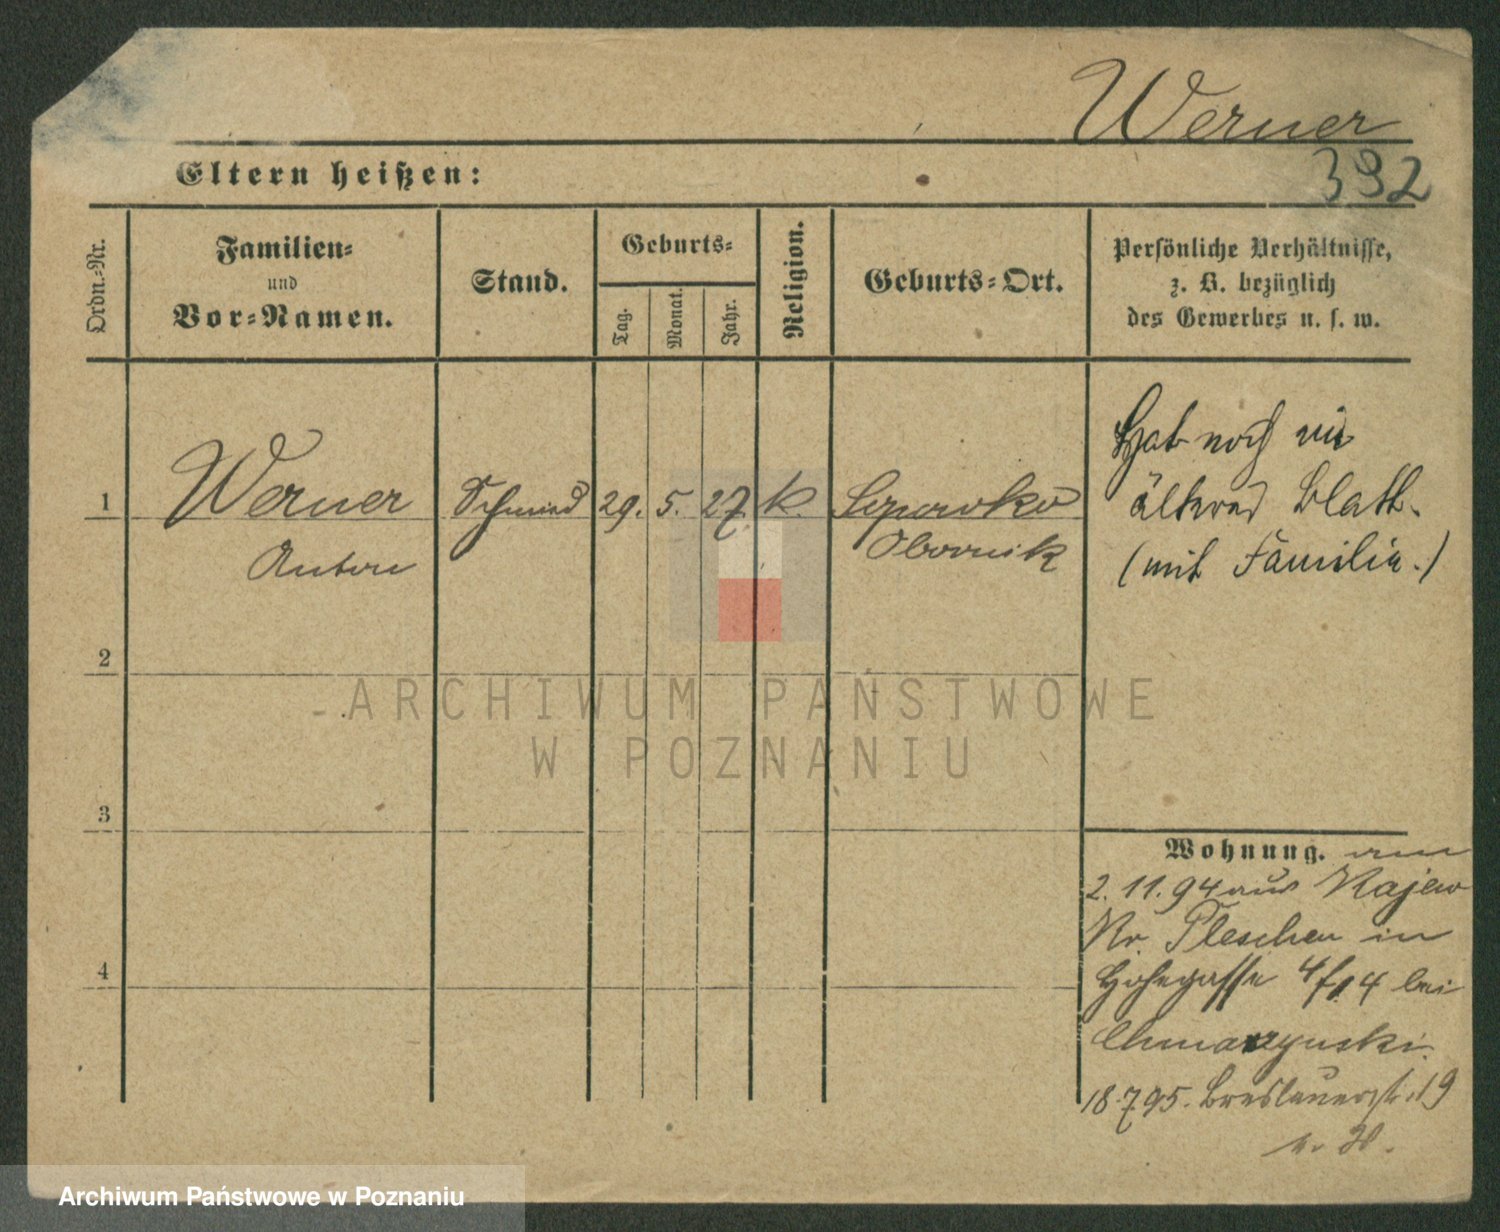 Werner
392
Eltern heißen:
Ordn.-Nr.
Familien-
und
Vor-Namen.
Stand.
Geburts-
Tag.
Monat.
Jahr.
Religion.
Geburts-Ort.
Persönliche Verhältnisse,
z. B. bezüglich
des Gewerbes u. s. w.
1
Werner
Anton
Schmied
29.
5.
27.
k.
Obornik
Hat noch ein
älteres Blatt.
(mit Familie.)
2
3
4
Wohnung. am
2. 11. 94 aus Kajew
Kr. Pleschen in
Hohegasse 4/14 bei
18.7.95. Breslauerstr. 19
ARCHIWUM PAŃSTWOWE
W POZNANIU
Archiwum Państwowe w Poznaniu